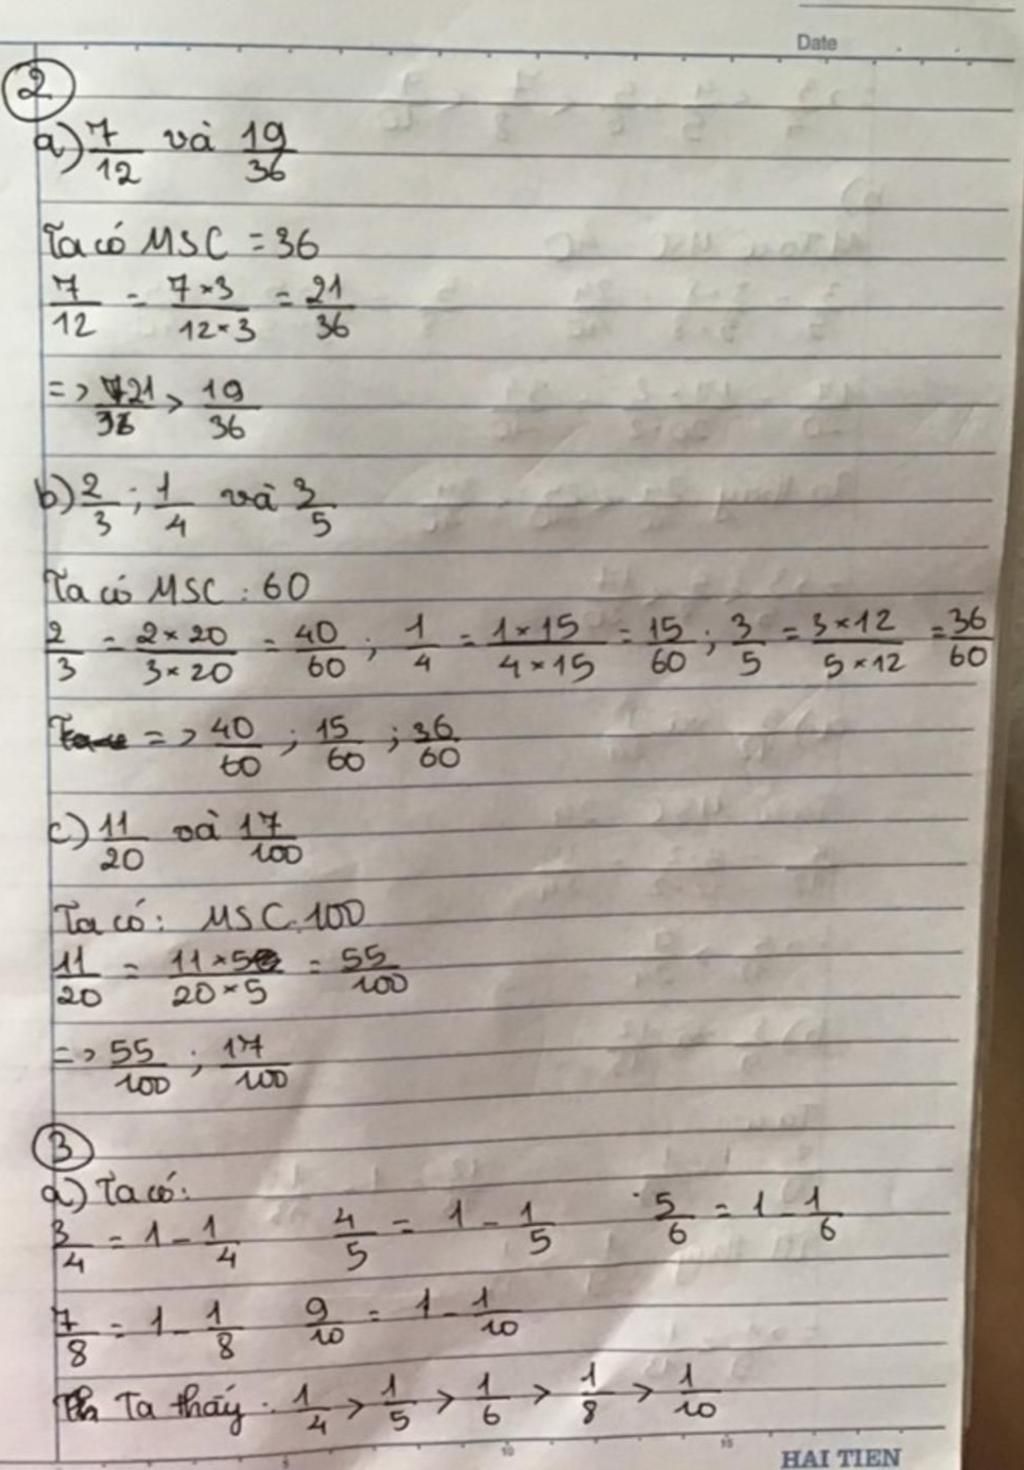 Date
2
a) 7/12 và 19/36
Ta có MSC = 36
7/12 = 7×3/12×3 = 21/36
=> 21/36 > 19/36
b) 2/3 ; 1/4 và 3/5
Ta có MSC : 60
2/3 = 2×20/3×20 = 40/60 ; 1/4 = 1×15/4×15 = 15/60 ; 3/5 = 3×12/5×12 = 36/60
=> 40/60 ; 15/60 ; 36/60
c) 11/20 và 17/100
Ta có: MSC: 100
11/20 = 11×5/20×5 = 55/100
=> 55/100 ; 17/100
3
a) Ta có:
3/4 = 1 - 1/4 4/5 = 1 - 1/5 5/6 = 1 - 1/6
7/8 = 1 - 1/8 9/10 = 1 - 1/10
Ta thấy: 1/4 > 1/5 > 1/6 > 1/8 > 1/10
5 10 15
HAI TIEN